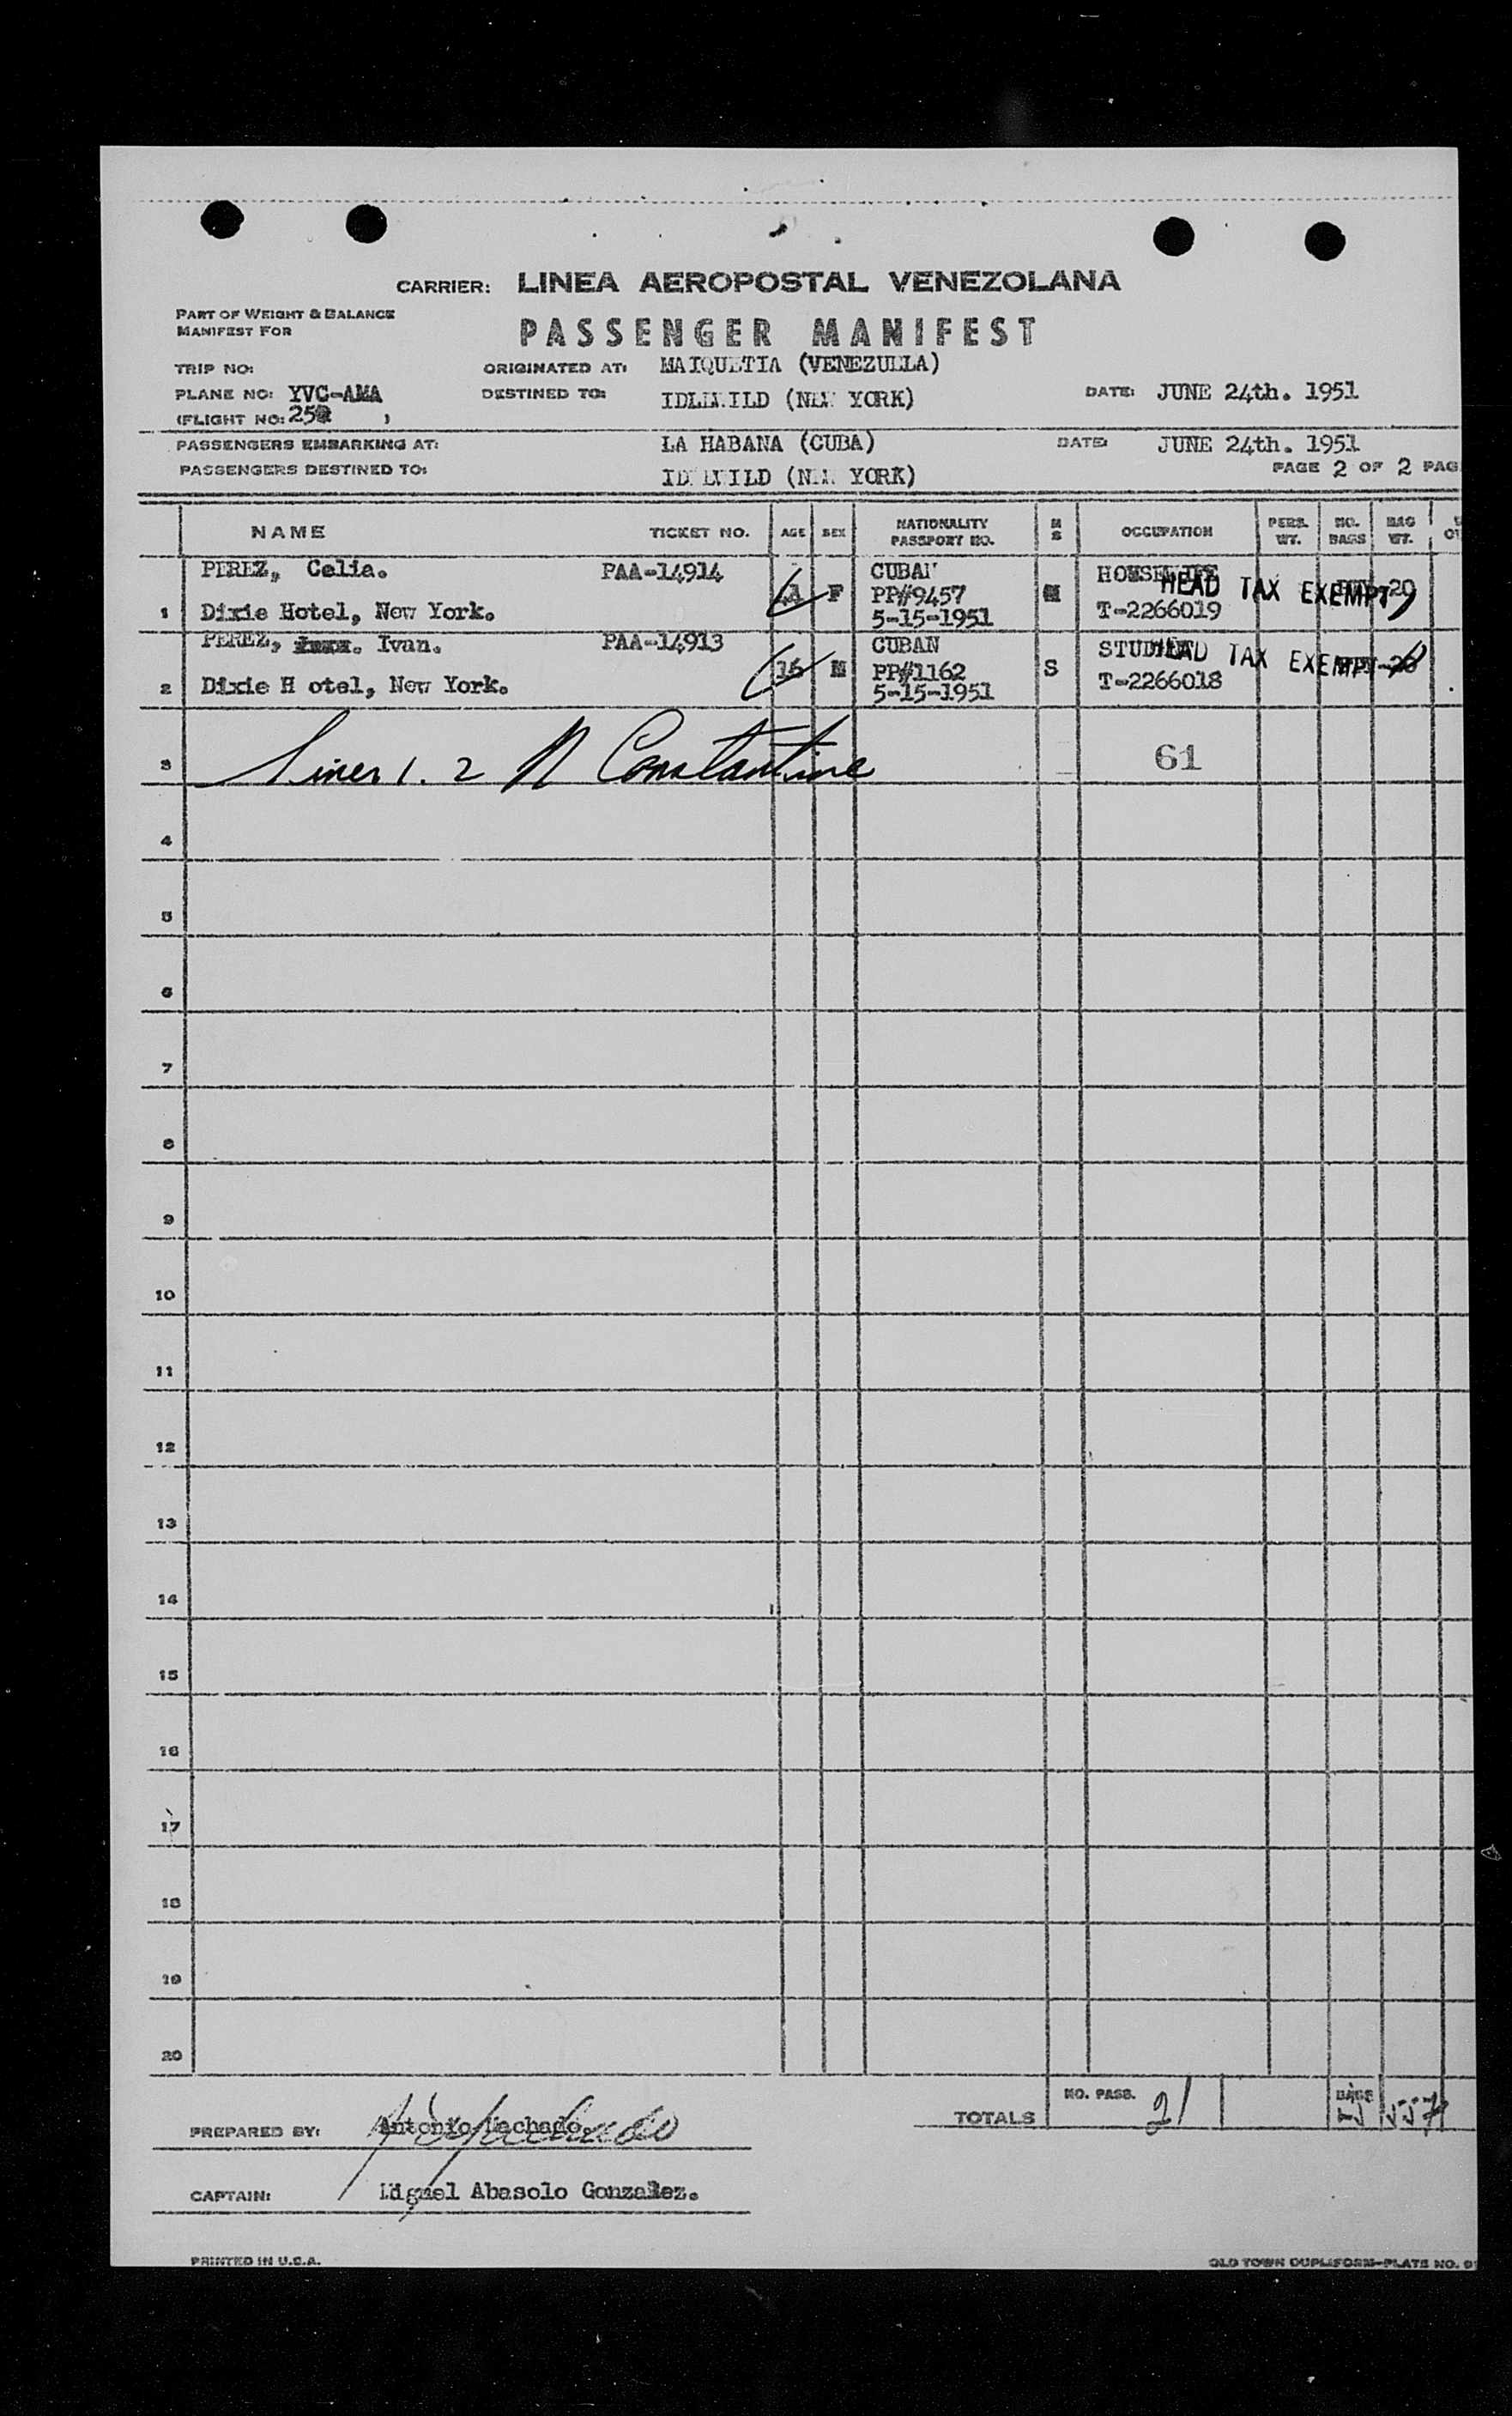 CARRIER: LINEA AEROPOSTAL VENEZOLANA
PART OF WEIGHT & BALANCE
MANIFEST FOR
PASSENGER MANIFEST
TRIP NO:
ORIGINATED AT: MAIQUETIA (VENEZUELA)
PLANE NO: YVC-AMA
DESTINED TO: IDLEWILD (NEW YORK)
DATE: JUNE 24th. 1951
(FLIGHT NO: )
PASSENGERS EMBARKING AT: LA HABANA (CUBA)
DATE: JUNE 24th. 1951
PASSENGERS DESTINED TO: IDLEWILD (NEW YORK)
PAGE 2 OF 2 PAG
NAME TICKET NO. AGE SEX NATIONALITY PASSPORT NO. M S OCCUPATION PERS. WT. NO. BAGS BAG WT.
PEREZ, Celia. PAA-14914 F CUBAN M HOUSEWIFE
PP#9457 HEAD TAX EXEMPT 20
1 Dixie Hotel, New York. 5-15-1951 T-2266019
PEREZ, Ivan. PAA-14913 16 M CUBAN S STUDENT
PP#1162 HEAD TAX EXEMPT
2 Dixie H otel, New York. 5-15-1951 T-2266018
3 Lines 1. 2 N Constantine 61
4
5
6
7
8
9
10
11
12
13
14
15
16
17
18
19
20
TOTALS NO. PASS. 21 BAGS 557
PREPARED BY: Antonio Machado.
CAPTAIN: Miguel Abasolo Gonzalez.
PRINTED IN U.S.A.
OLD TOWN DUPLIFORM-PLATE NO. 9